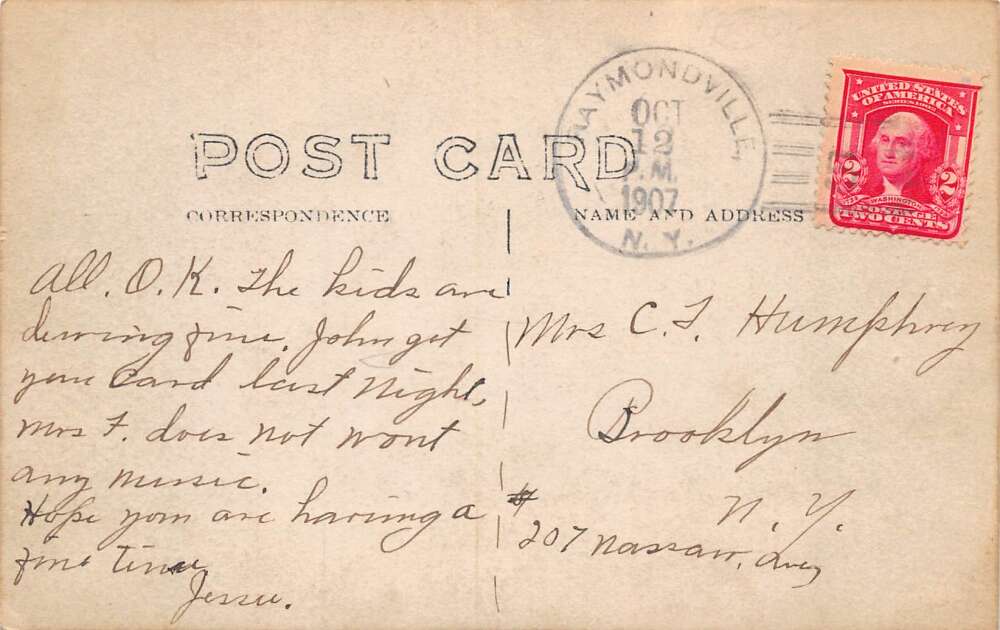 POST CARD
CORRESPONDENCE
NAME AND ADDRESS
RAYMONDVILLE,
OCT
12
P.M.
1907
N. Y.
UNITED STATES
OF AMERICA
SERIES 1902
2 2
WASHINGTON
POSTAGE
TWO CENTS
All. O.K. The kids are
dewing fine. John got
your Card last Night,
Mrs F. does not wont
any music.
Hope you are having a
fine time
Jessie.
Mrs C. F. Humphrey
Brooklyn
N. Y.
# 207 Nassaw, Ave,